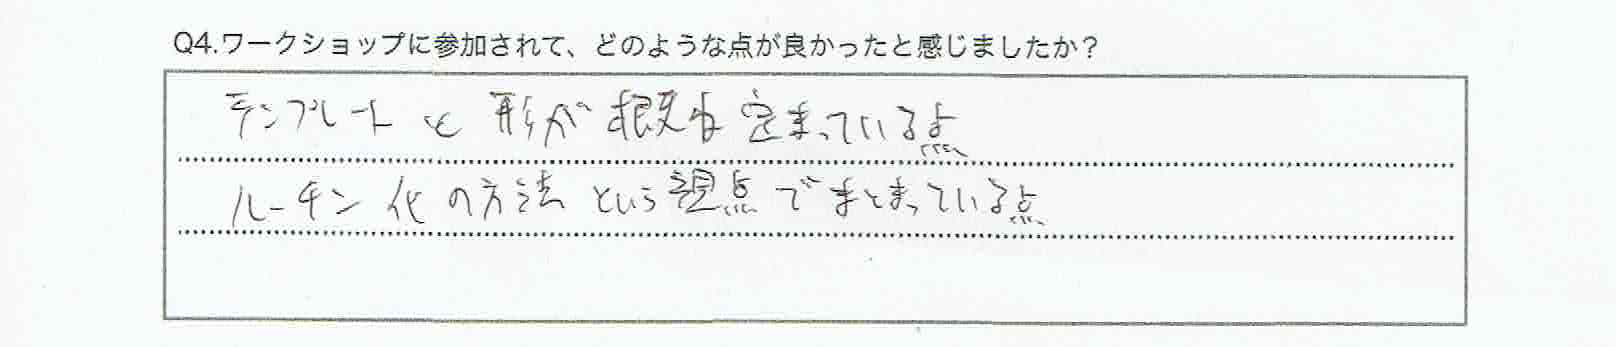 Q4.ワークショップに参加されて、どのような点が良かったと感じましたか？
テンプレートと形が概ね定まっている点
ルーチン化の方法という視点でまとまっている点